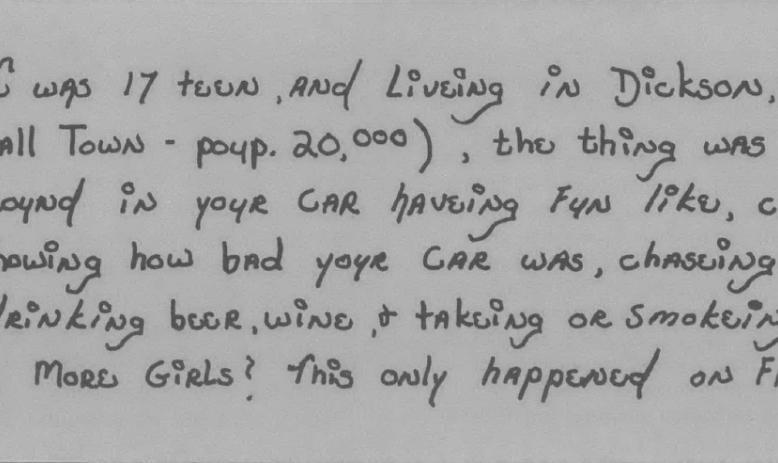 was 17 teen, and Liveing in Dickson,
all Town - poup. 20,000), the thing was
ound in your car haveing Fun like, c
howing how bad your car was, chaseing
rinking beer, wine, & takeing or smokein
more Girls? This only happened on F